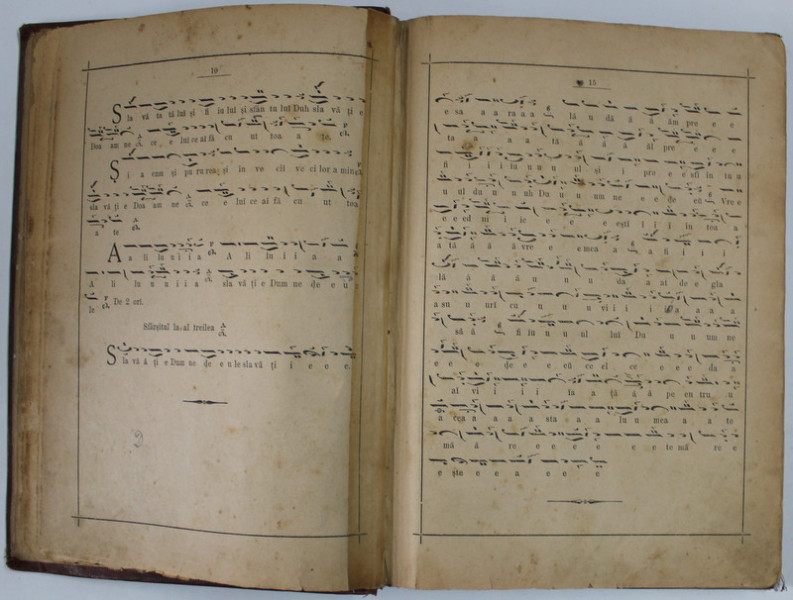 10
S la vă ta tă lui și fi iu lui și sfân tu lui Duh sla vă ți e
Doa am ne ce e lui ce ai fă cu ut toa a te
Ș i a cum și pu ru rea și in ve cii ve ci lor a min
sla vă ți e Doa am ne ce e lui ce ai fă cu ut toa
a te
A a li lu u i i a A li lu i i a a
A li lu u i i a sla vă ți e Dum ne de e u u
le De 2 ori.
Sfârșitul la al treilea
S la vă ă ți e Dum ne de e u le sla vă ți i e e e
15
e sa a a ra a a lă u dă ă ă ăm pre e e
ta a a a tă ă ă ăl pre e e
fi i i iu u u u ul și i pre e e sfi in tu u
u ul du u uh Du u u um ne e e de eu Vre e
e e ed mi i ic e e ești i i i in toa a
a tă ă ă ă vre e e mea a a a fi i i i
lă ă ă ă u u u sla a at de e gla
a su u uri cu u u u vi i i i oa a a a
să ă fi iu u u ul lui Du u u um ne
e e e de e e eu ce el ce e e e da a
al vi i i i ia a ță ă ă ă pe en tru u
a cea a a a a sta a a lu u mea a a te
mă ă re e e e e te mă re e
e ște e e e a e e e